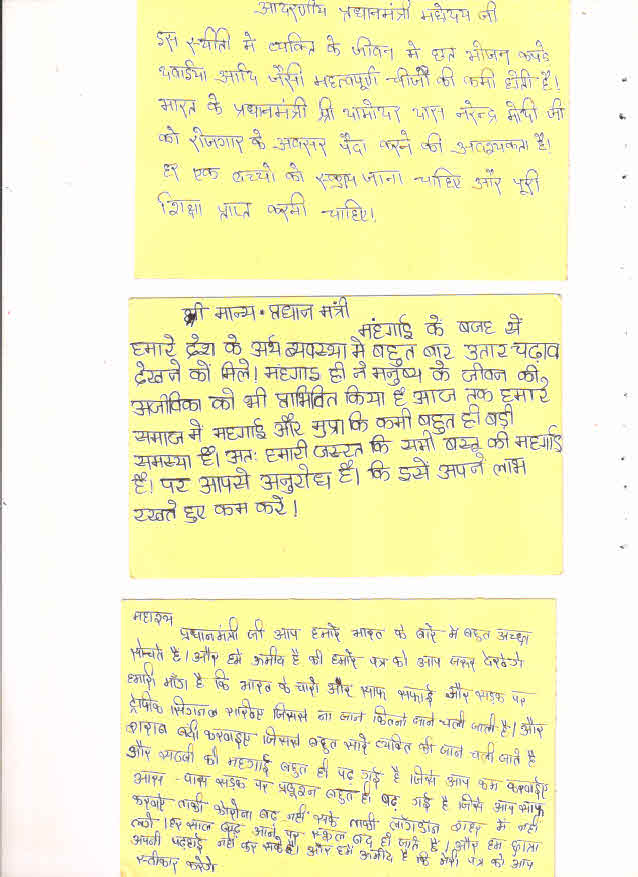 आदरणीय प्रधानमंत्री महोदय जी
इस स्थीती में व्यक्ति के जीवन में छत भोजन कपड़े
दवाईया आदि जैसी महत्वपूर्ण चीजों की कमी होती है।
भारत के प्रधानमंत्री श्री दामोदर दास नरेन्द्र मोदी जी
को रोजगार के अवसर पैदा करने की आवश्यकता है।
हर एक बच्चो को स्कूल जाना चाहिए और पूरी
शिक्षा प्राप्त करनी चाहिए।
श्री मान्य प्रधान मंत्री
मंहगाई के बजह से
हमारे देश के अर्थ व्यवस्था मे बहुत बार उतार चढ़ाव
देखने को मिले। मंहगाई ही ने मनुष्य के जीवन की
अजीविका को भी प्राभिवित किया है आज तक हमारे
समाज मे महगाई और मुद्रा कि कमी बहुत ही बड़ी
समस्या है। अतः हमारी जरूरत कि सभी बस्तू की महगाई
है। पर आपसे अनुरोध है। कि इसे अपने लाभ
रखते हुए कम करें।
महाशय
प्रधानमंत्री जी आप हमारे भारत के बारे में बहुत अच्छा
सोचते है। और हमें उमीद है की हमारे पत्र को आप जरूर देखेंगे
हमारी माँग है कि भारत के चारो और साफ सफाई और सड़क पर
ट्रेफीक सिगनल जिससे ना जाने कितनो जाने चली जाती है। और
शराब बंदी करवाइए जिससे बहुत सारे व्यक्ति की जाने चली जाते है
और सब्जी की महगाई बहुत ही बढ़ गई है जिसे आप कम करवाइए
आस - पास सड़क पर प्रदूशन बहुत ही बढ़ गई है जिसे आप साफ
करवाए ताकी कोरोना बढ़ नही सके ताकी लॉगडॉन शहर में नही
लगे। हर साल बाढ़ आने पर स्कूल बंद हो जाते है। और हम छात्रा
अपनी पढ़हाई नही कर सकते है। और हमे उमीद है कि मेरी पत्र को आप
स्वीकार करेंगे